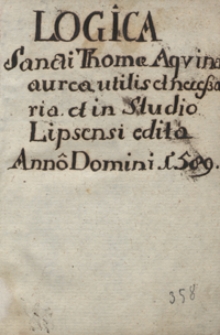 LOGICA
Sancti Thomæ Aqvina
aurea utilis et necessa
ria et in Studio
Lipsensi edita
Annô Domini 1509.
358